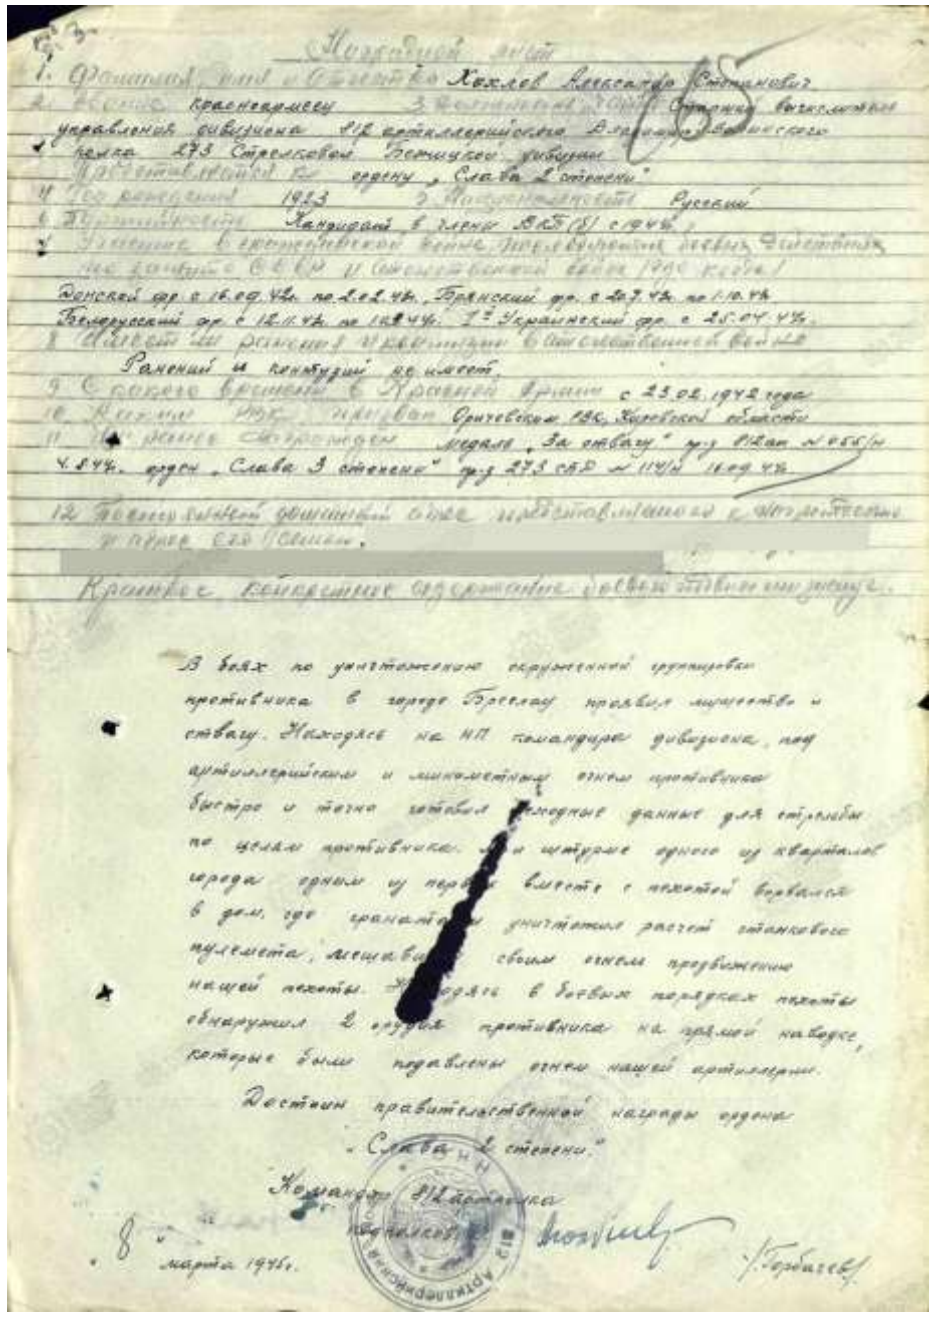 Наградной лист
1. Фамилия, имя и Отчество Хохлов Александр Степанович
2. Звание красноармеец 3. Должность, часть Старший вычислитель
управления дивизиона 812 артиллерийского
полка 273 Стрелковой Бежицкой дивизии
Представляется к ордену „Слава 2 степени"
4 Год рождения 1923 5 Национальность Русский
6 Партийность Кандидат в члены ВКП(б) с 1944г.
7 Участие в гражданской войне, последующих боевых действиях
по защите СССР и отечественной войне /где когда/
Донской фр. с 16.09.42г. по 2.02.43г., Брянский фр. с 20.7.43г. по 1.10.43г.
Белорусский фр. с 12.11.43г. по 1 Украинский фр. с 25.04.44г.
8 Имеет ли ранения и контузии в отечественной войне
Ранений и контузий не имеет.
9 С какого времени в Красной Армии с 23.02.1942 года
10 Каким РВК призван Оричевским РВК, Кировской области
11 Чем ранее награжден медаль „За отвагу" пр-з 812 ап N 055/н
4.8.44г. орден „Слава 3 степени" пр-з 273 СКД N 114/н 16.09.44г.
12 Постоянный домашний адрес представляемого к награждению
и адрес его семьи.
Краткое, конкретное содержание боевого подвига или заслуг.
В боях по уничтожению окруженной группировки
противника в городе Бреслау проявил мужество и
отвагу. Находясь на НП командира дивизиона, под
артиллерийским и минометным огнем противника
быстро и точно готовил исходные данные для стрельбы
по целям противника. При штурме одного из кварталов
города одним из первых вместе с пехотой ворвался
в дом, где гранатами уничтожил расчет станкового
пулемета, мешавший своим огнем продвижению
нашей пехоты. Находясь в боевых порядках пехоты
обнаружил 2 орудия противника на прямой наводке,
которые были подавлены огнем нашей артиллерии.
Достоин правительственной награды ордена
„Слава 2 степени."
Командир 812 артполка
подполковник
„8" марта 1945г. /Горбачев/
812 Артиллерийский